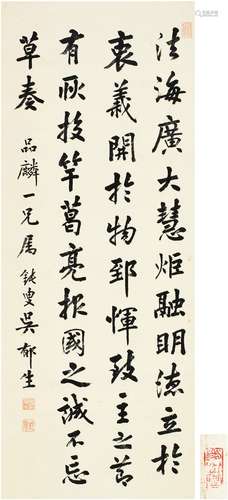 法海廣大慧炬融明德立於
衷義開於物郅惲致主之節
有耿投竿葛亮報國之誠不忘
草奏
品麟一兄属 鈍叟吳郁生